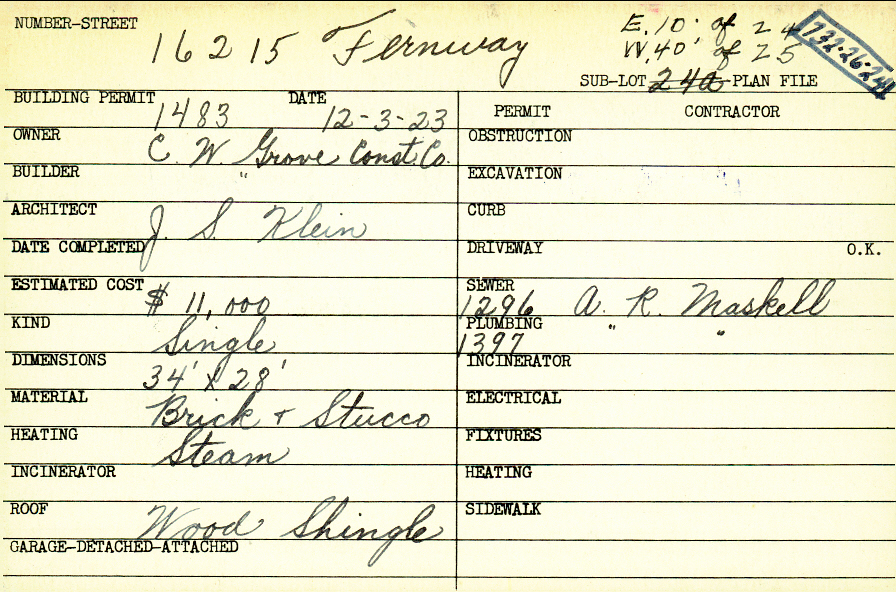 NUMBER-STREET 16215 Fernway E. 10' of 24
W. 40' of 25
732-26-241
SUB-LOT 24a-PLAN FILE
BUILDING PERMIT 1483 DATE 12-3-23
PERMIT CONTRACTOR
OWNER C. W. Grove Const. Co.
OBSTRUCTION
BUILDER "
EXCAVATION
ARCHITECT J. S. Klein
CURB
DATE COMPLETED
DRIVEWAY O.K.
ESTIMATED COST $ 11,000
SEWER 1296 A. R. Maskell
KIND Single
PLUMBING 1397 " "
DIMENSIONS 34' x 28'
INCINERATOR
MATERIAL Brick + Stucco
ELECTRICAL
HEATING Steam
FIXTURES
INCINERATOR
HEATING
ROOF Wood Shingle
SIDEWALK
GARAGE-DETACHED-ATTACHED